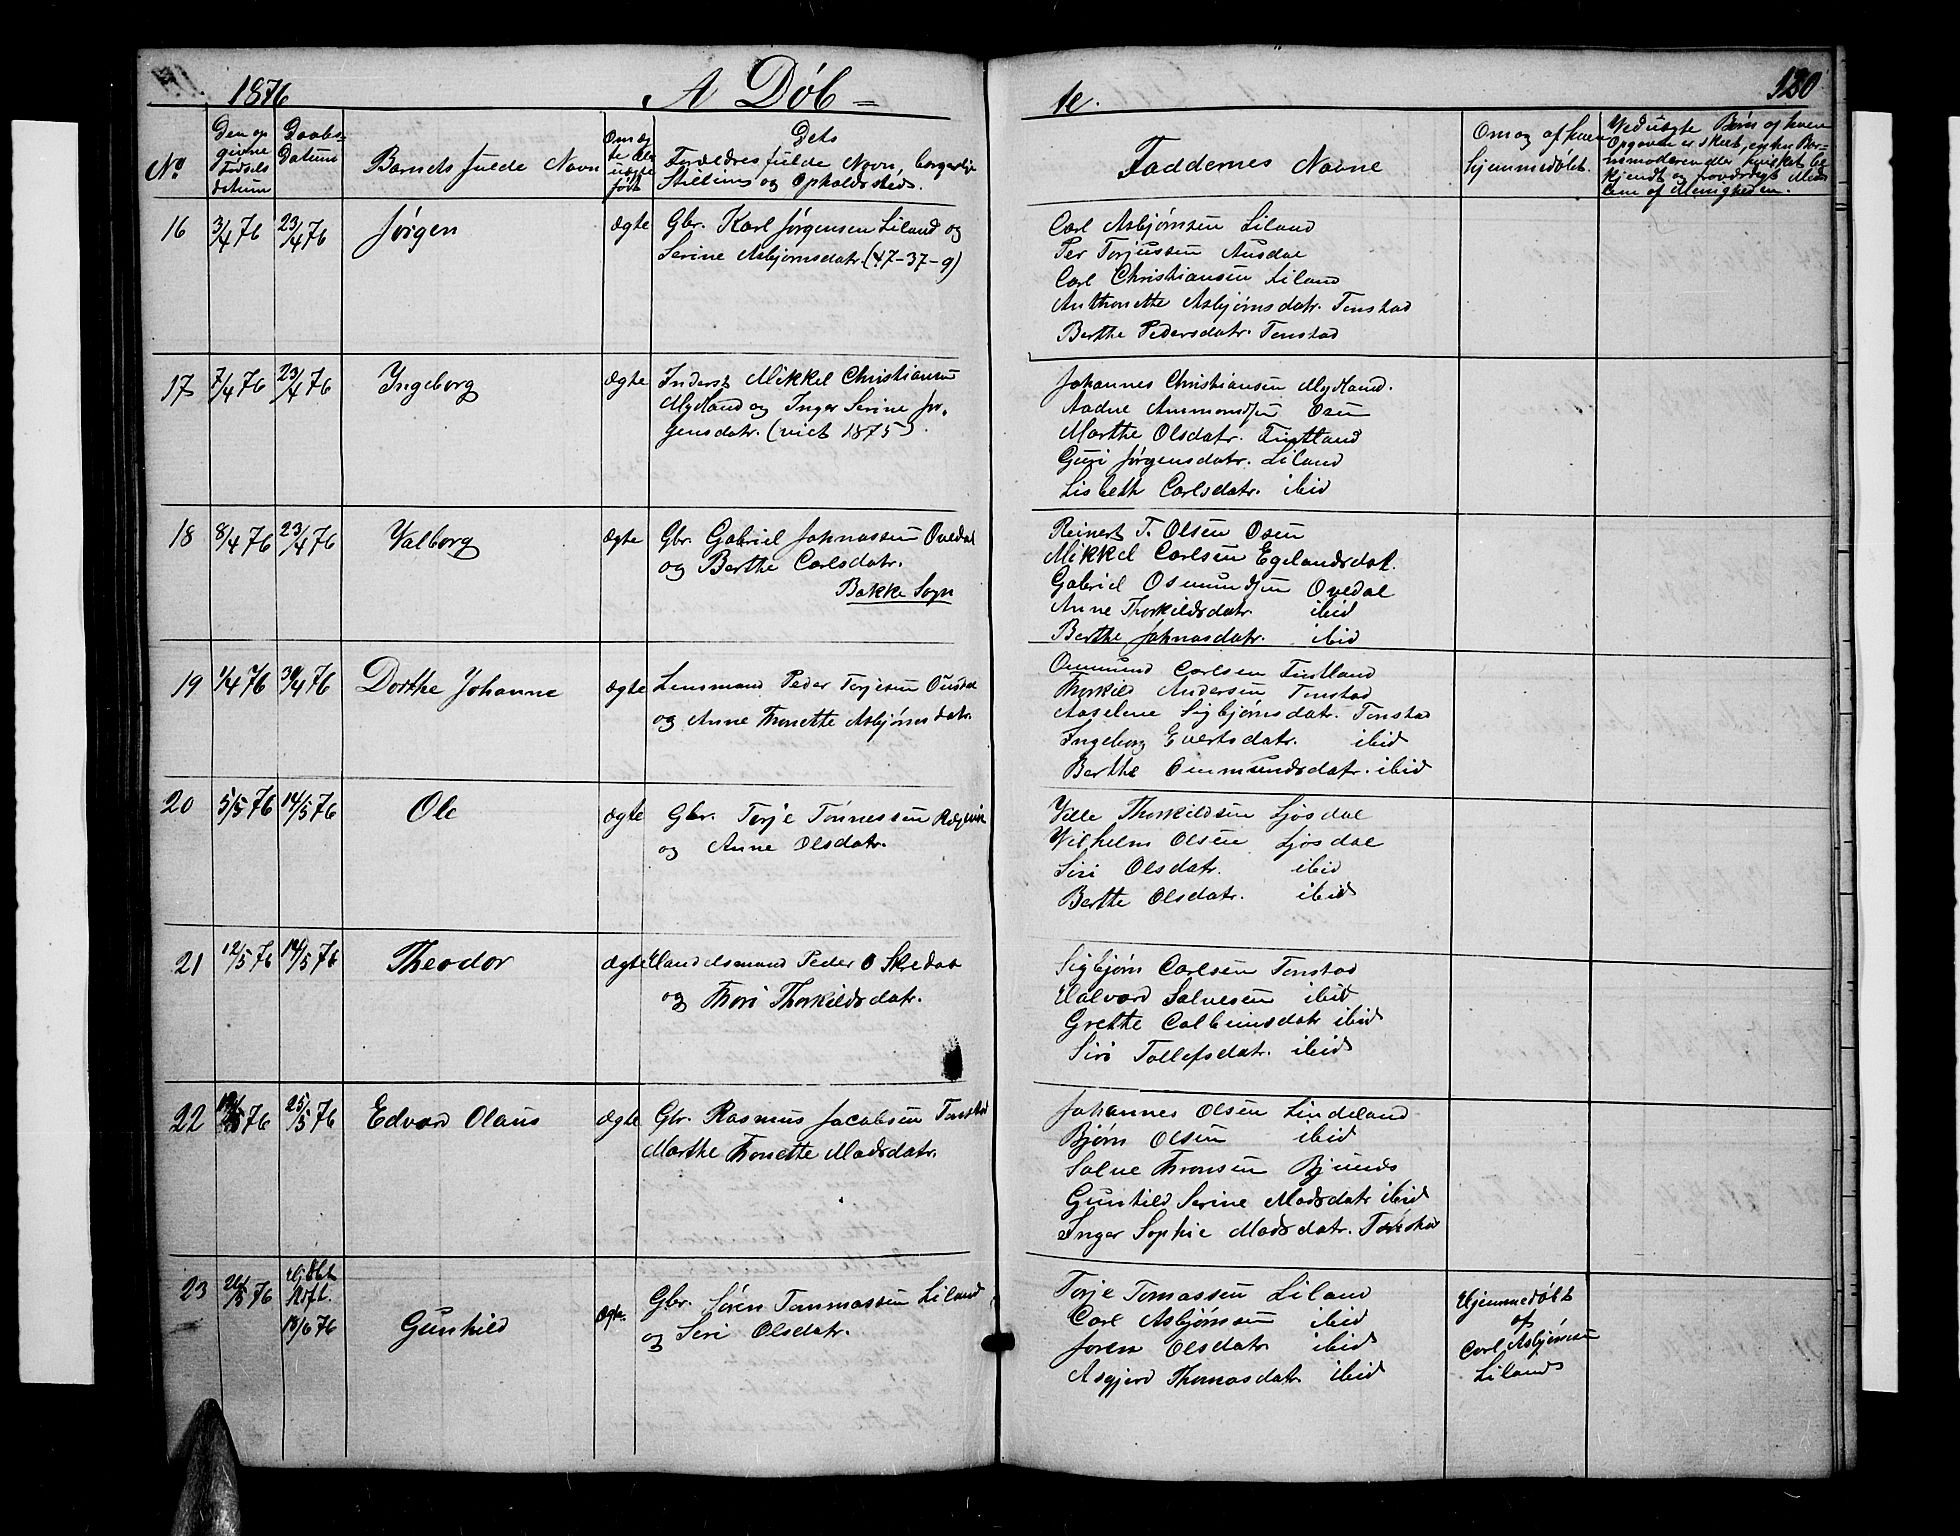 1876 A Døb = te. 120
No
Den op
givne
Fødsels
datum
Daabs-
Datum
Barnets fulde Navn
Om æg
te eller
uægte
født
Dets
Forældres fulde Navn, borgerlige
Stilling og Opholdssted.
Faddernes Navne
Om og af hvem
hjemmedøbt.
Ved uægte Børn af hvem
Opgaven er skeet, enten Bar-
nemoderen eller hvilket be
kjendt og troværdigt Med
lem af Menigheden.
16 3/4 76 23/4 76 Jørgen ægte
Gbr. Karl Jørgensen Liland og
Serine Asbjørnsdatr. (47-37-9)
Carl Asbjørnsen Liland
Per Torjussen Ausdal
Carl Christiansen Liland
Anthonette Asbjørnsdatr. Tonstad
Berthe Pedersdatr. Tonstad
17 7/4 76 23/4 76 Ingeborg ægte
Inderst Mikkel Christiansen
Mydland og Inger Serine Jør-
gensdatr. (viet 1875).
Johannes Christiansen Mydland.
Aadne Ammundsen Osen
Marthe Olsdatr. Fintland
Guri Jørgensdatr. Liland
Lisbeth Carlsdatr. ibid
18 8/4 76 23/4 76 Valborg ægte
Gbr. Gabriel Johnassen Ovedal
og Berthe Carlsdatr.
Bakke Sogn
Reinert T. Olsen Osen
Mikkel Carlsen Egelandsdal.
Gabriel Osmundsen Ovedal
Anne Thorkildsdatr. ibid
Berthe Johnasdatr. ibid
19 1/4 76 30/4 76 Dorthe Johanne ægte
Lensmand Peder Torjesen Ousdal
og Anne Thonette Asbjørnsdatr.
Ommund Carlsen Fintland
Thorkild Andersen Tonstad
Aaselene Sigbjørnsdatr. Tonstad
Ingeborg Evertsdatr. ibid
Berthe Ommundsdatr. ibid
20 5/5 76 14/5 76 Ole ægte
Gbr. Terje Tønnessen
og Anne Olsdatr.
Ville Thorkildsen Sjøsdal
Vilhelm Olsen Sjøsdal
Siri Olsdatr. ibid
Berthe Olsdatr. ibid
21 12/5 76 14/5 76 Theodor ægte
Handelsmand Peder O Skredat
og Thori Thorkildsdatr.
Sigbjørn Carlsen Tonstad
Halvard Salvesen ibid
Grethe Colbeinsdatr ibid
Siri Tollefsdatr. ibid
22 76 25/5 76 Edvard Olaus ægte
Gbr Rasmus Jacobsen Tonstad
Marthe Thonette Madsdatr.
Johannes Olsen Lindeland
Bjørn Olsen ibid
Salve Thronsen Bjunes
Gunhild Serine Madsdatr ibid
Inger Sophie Madsdatr. Tonstad
23 26/5 76 Hjdbt
18/6 76 Gunhild ægte
Gbr. Søren Tommassen Liland
og Seri Olsdatr.
Terje Tomassen Liland
Carl Asbjørnsen ibid
Joren Olsdatr ibid
Asgjerd Thomasdatr. ibid
Hjemmedøbt
af
Carl Asbjørnsen
Liland